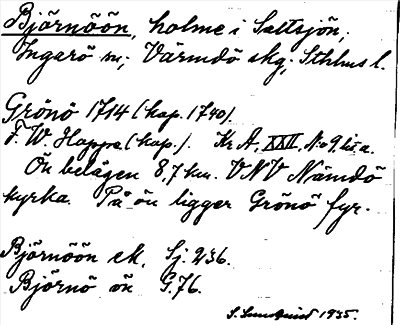 Björnöön, holme i Saltsjön;
Ingarö sn; Värmdö skg; Sthlms l.
Grönö 1714 (kop. 1740).
F. W. Hoppe (kop.). Kr A, XXII, No 9 lit a.
Ön belägen 8,7 km. VNV Nämdö
kyrka. På ön ligger Grönö fyr.
Björnöön ek. Sj. 236.
Björnö ön G. 76.
S. Lundquist 1935.